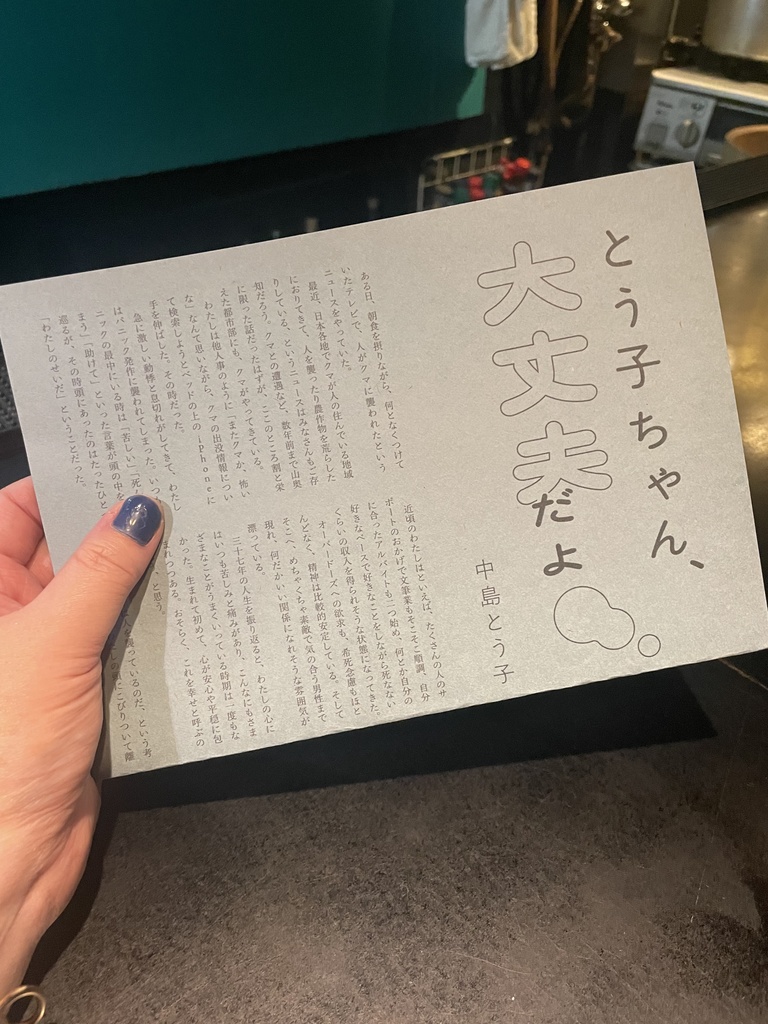 とう子ちゃん、
大丈夫だよ
中島とう子
ある日、朝食を摂りながら、何となくつけて
いたテレビで、人がクマに襲われたという
ニュースをやっていた。
最近、日本各地でクマが人の住んでいる地域
におりてきて、人を襲ったり農作物を荒らした
りしている、というニュースはみなさんもご存
知だろう。クマとの遭遇など、数年前まで山奥
に限った話だったはずが、ここのところ割と栄
えた都市部にも、クマがやってきている。
わたしは他人事のように「またクマか、怖い
な」なんて思いながら、クマの出没情報につい
て検索しようとベッドの上のiPhoneに
手を伸ばした。その時だった。
急に激しい動悸と息切れがしてきて、わたし
はパニック発作に襲われてしまった。いつ
ニックの最中にいる時は「苦しい」「死
まう」「助けて」といった言葉が頭の中を
巡るが、その時頭にあったのはたったひと
「わたしのせいだ」ということだった。
近頃のわたしはといえば、たくさんの人のサ
ポートのおかげで文筆業もそこそこ順調、自分
に合ったアルバイトも二つ始め、何とか自分の
好きなペースで好きなことをしながら死なない
くらいの収入を得られそうな状態になってきた。
オーバードーズへの欲求も、希死念慮もほと
んどなく、精神は比較的安定している。そして
そこへ、めちゃくちゃ素敵で気の合う男性まで
現れ、何だかいい関係になれそうな雰囲気が
漂っている。
三十七年の人生を振り返ると、わたしの心に
はいつも苦しみと痛みがあり、こんなにもさま
ざまなことがうまくいっている時期は一度もな
かった。生まれて初めて、心が安心や平穏に包
まれつつある。おそらく、これを幸せと呼ぶの
、と思う。
人を襲っているのだ、という考
の頭にこびりついて離